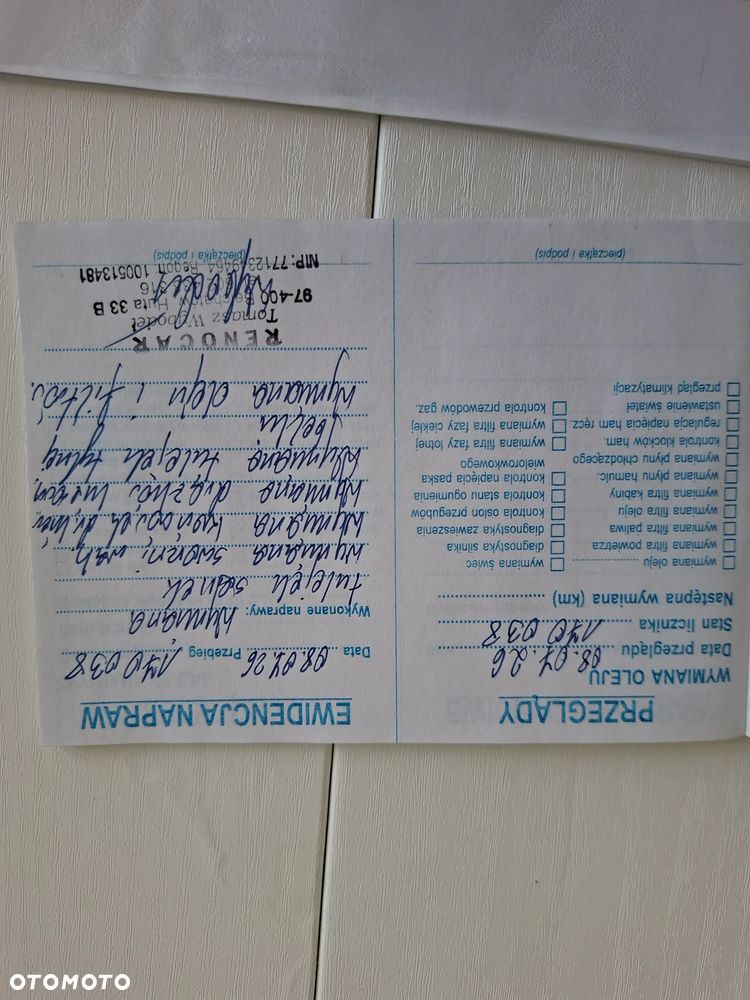 PRZEGLĄDY
WYMIANA OLEJU
Data przeglądu 08.07.26
Stan licznika 170 038
Następna wymiana (km)
wymiana oleju
wymiana filtra powietrza
wymiana filtra paliwa
wymiana filtra oleju
wymiana filtra kabiny
wymiana płynu hamulc.
wymiana płynu chłodzącego
kontrola klocków ham.
regulacja napięcia ham. ręcz.
ustawienie świateł
przegląd klimatyzacji
wymiana świec
diagnostyka silnika
diagnostyka zawieszenia
kontrola osłon przegubów
kontrola stanu ogumienia
kontrola napięcia paska
wielorowkowego
wymiana filtra fazy lotnej
wymiana filtra fazy ciekłej
kontrola przewodów gaz.
(pieczątka i podpis)
EWIDENCJA NAPRAW
Data 08.07.26 Przebieg 170 038
Wykonane naprawy: Wymiana
tulejek sanek
Wymiana sworzni, wah
Wymiana końcówek drążków
Wymiana drążków
Wymiana tulejek tylnej
belki
Wymiana oleju i filtrów
RENOCAR
Tomasz
97-400 Bełchatów, Huta 33 B
NIP: 771 Regon 100513481
(pieczątka i podpis)
OTOMOTO